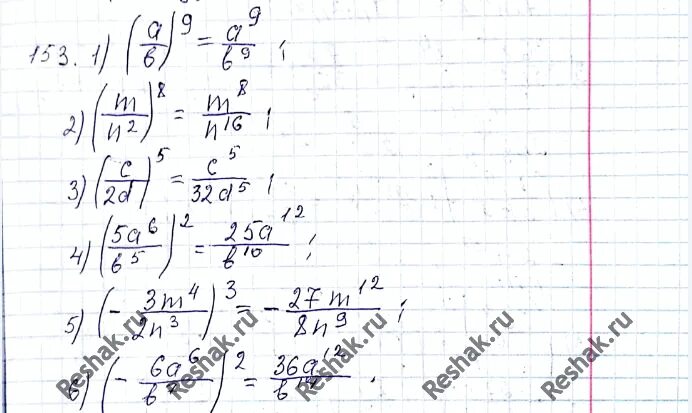 153. 1) (a/b)^9 = a^9/b^9 ;
2) (m/n^2)^8 = m^8/n^16 ;
3) (c/2d)^5 = c^5/32d^5 ;
4) (5a^6/b^5)^2 = 25a^12/b^10 ;
5) (- 3m^4/2n^3)^3 = - 27m^12/8n^9 ;
6) (- 6a^6/b)^2 = 36a^12/b .
Reshak.ru Reshak.ru Reshak.ru Reshak.ru